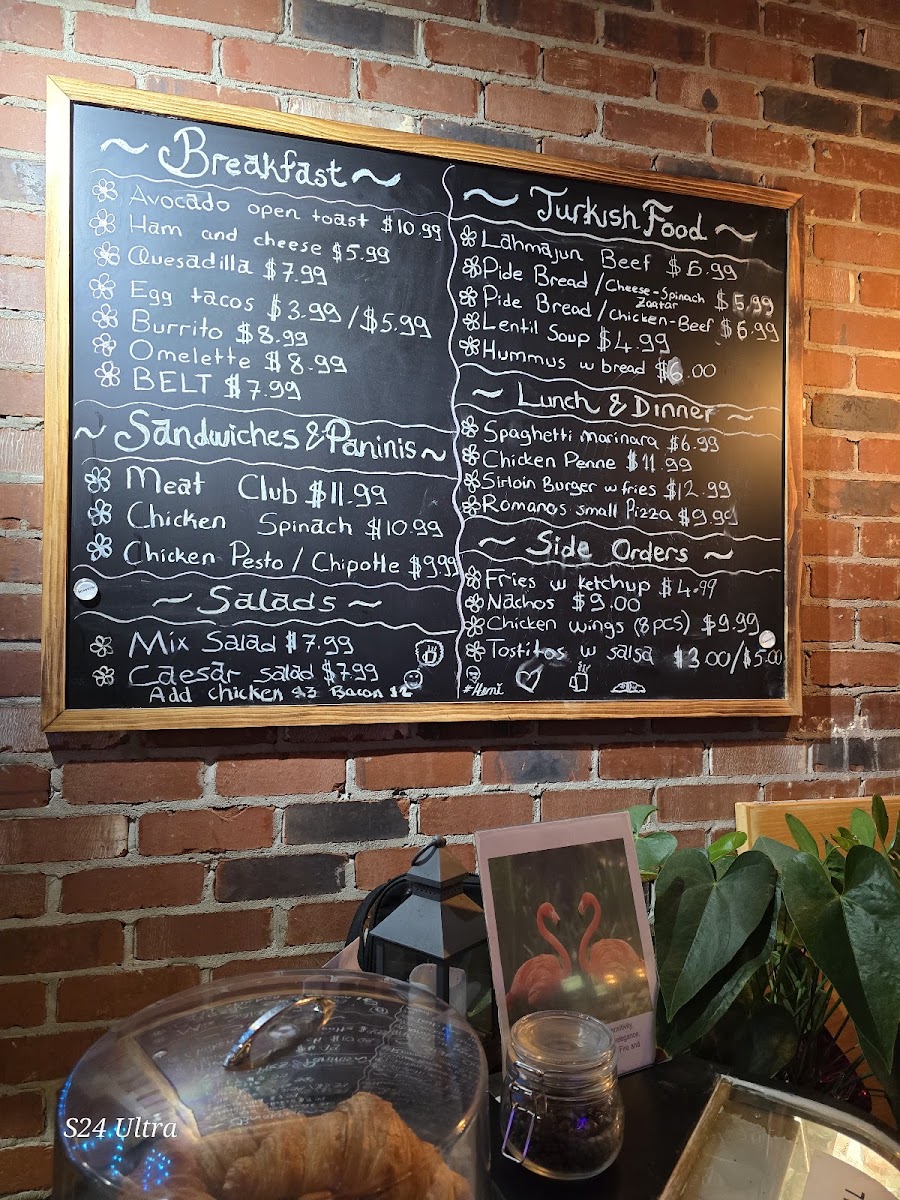 ~ Breakfast ~
Avocado open toast $10.99
Ham and cheese $5.99
Quesadilla $7.99
Egg tacos $3.99/$5.99
Burrito $8.99
Omelette $8.99
BELT $7.99
~ Sandwiches & Paninis ~
Meat Club $11.99
Chicken Spinach $10.99
Chicken Pesto / Chipotle $9.99
~ Salads ~
Mix Salad $7.99
Caesar salad $7.99
Add chicken $3 Bacon
~ Turkish Food ~
Lahmajun Beef $6.99
Pide Bread / Cheese-Spinach Zaatar $5.99
Pide Bread / Chicken-Beef $6.99
Lentil Soup $4.99
Hummus w bread $6.00
~ Lunch & Dinner ~
Spaghetti marinara $6.99
Chicken Penne $11.99
Sirloin Burger w fries $12.99
Romanos small Pizza $9.99
~ Side Orders ~
Fries w ketchup $4.99
Nachos $9.00
Chicken wings (8pcs) $9.99
Tostitos w salsa $3.00/$5.00
elegance,
Fire and
S24 Ultra